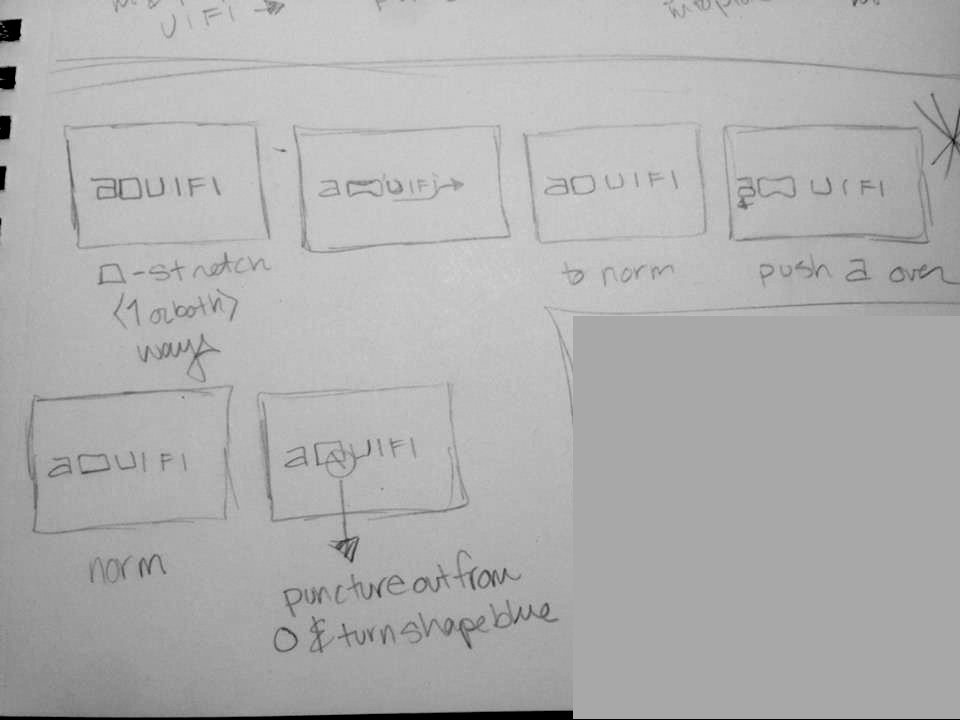 UIFI →
a□UIFI
a□UIFI→
a□UIFI
a□ UIFI
□-stretch
(1 or both)
ways
to norm
push a over
a□UIFI
a□UIFI
norm
puncture out from
O & turn shape blue